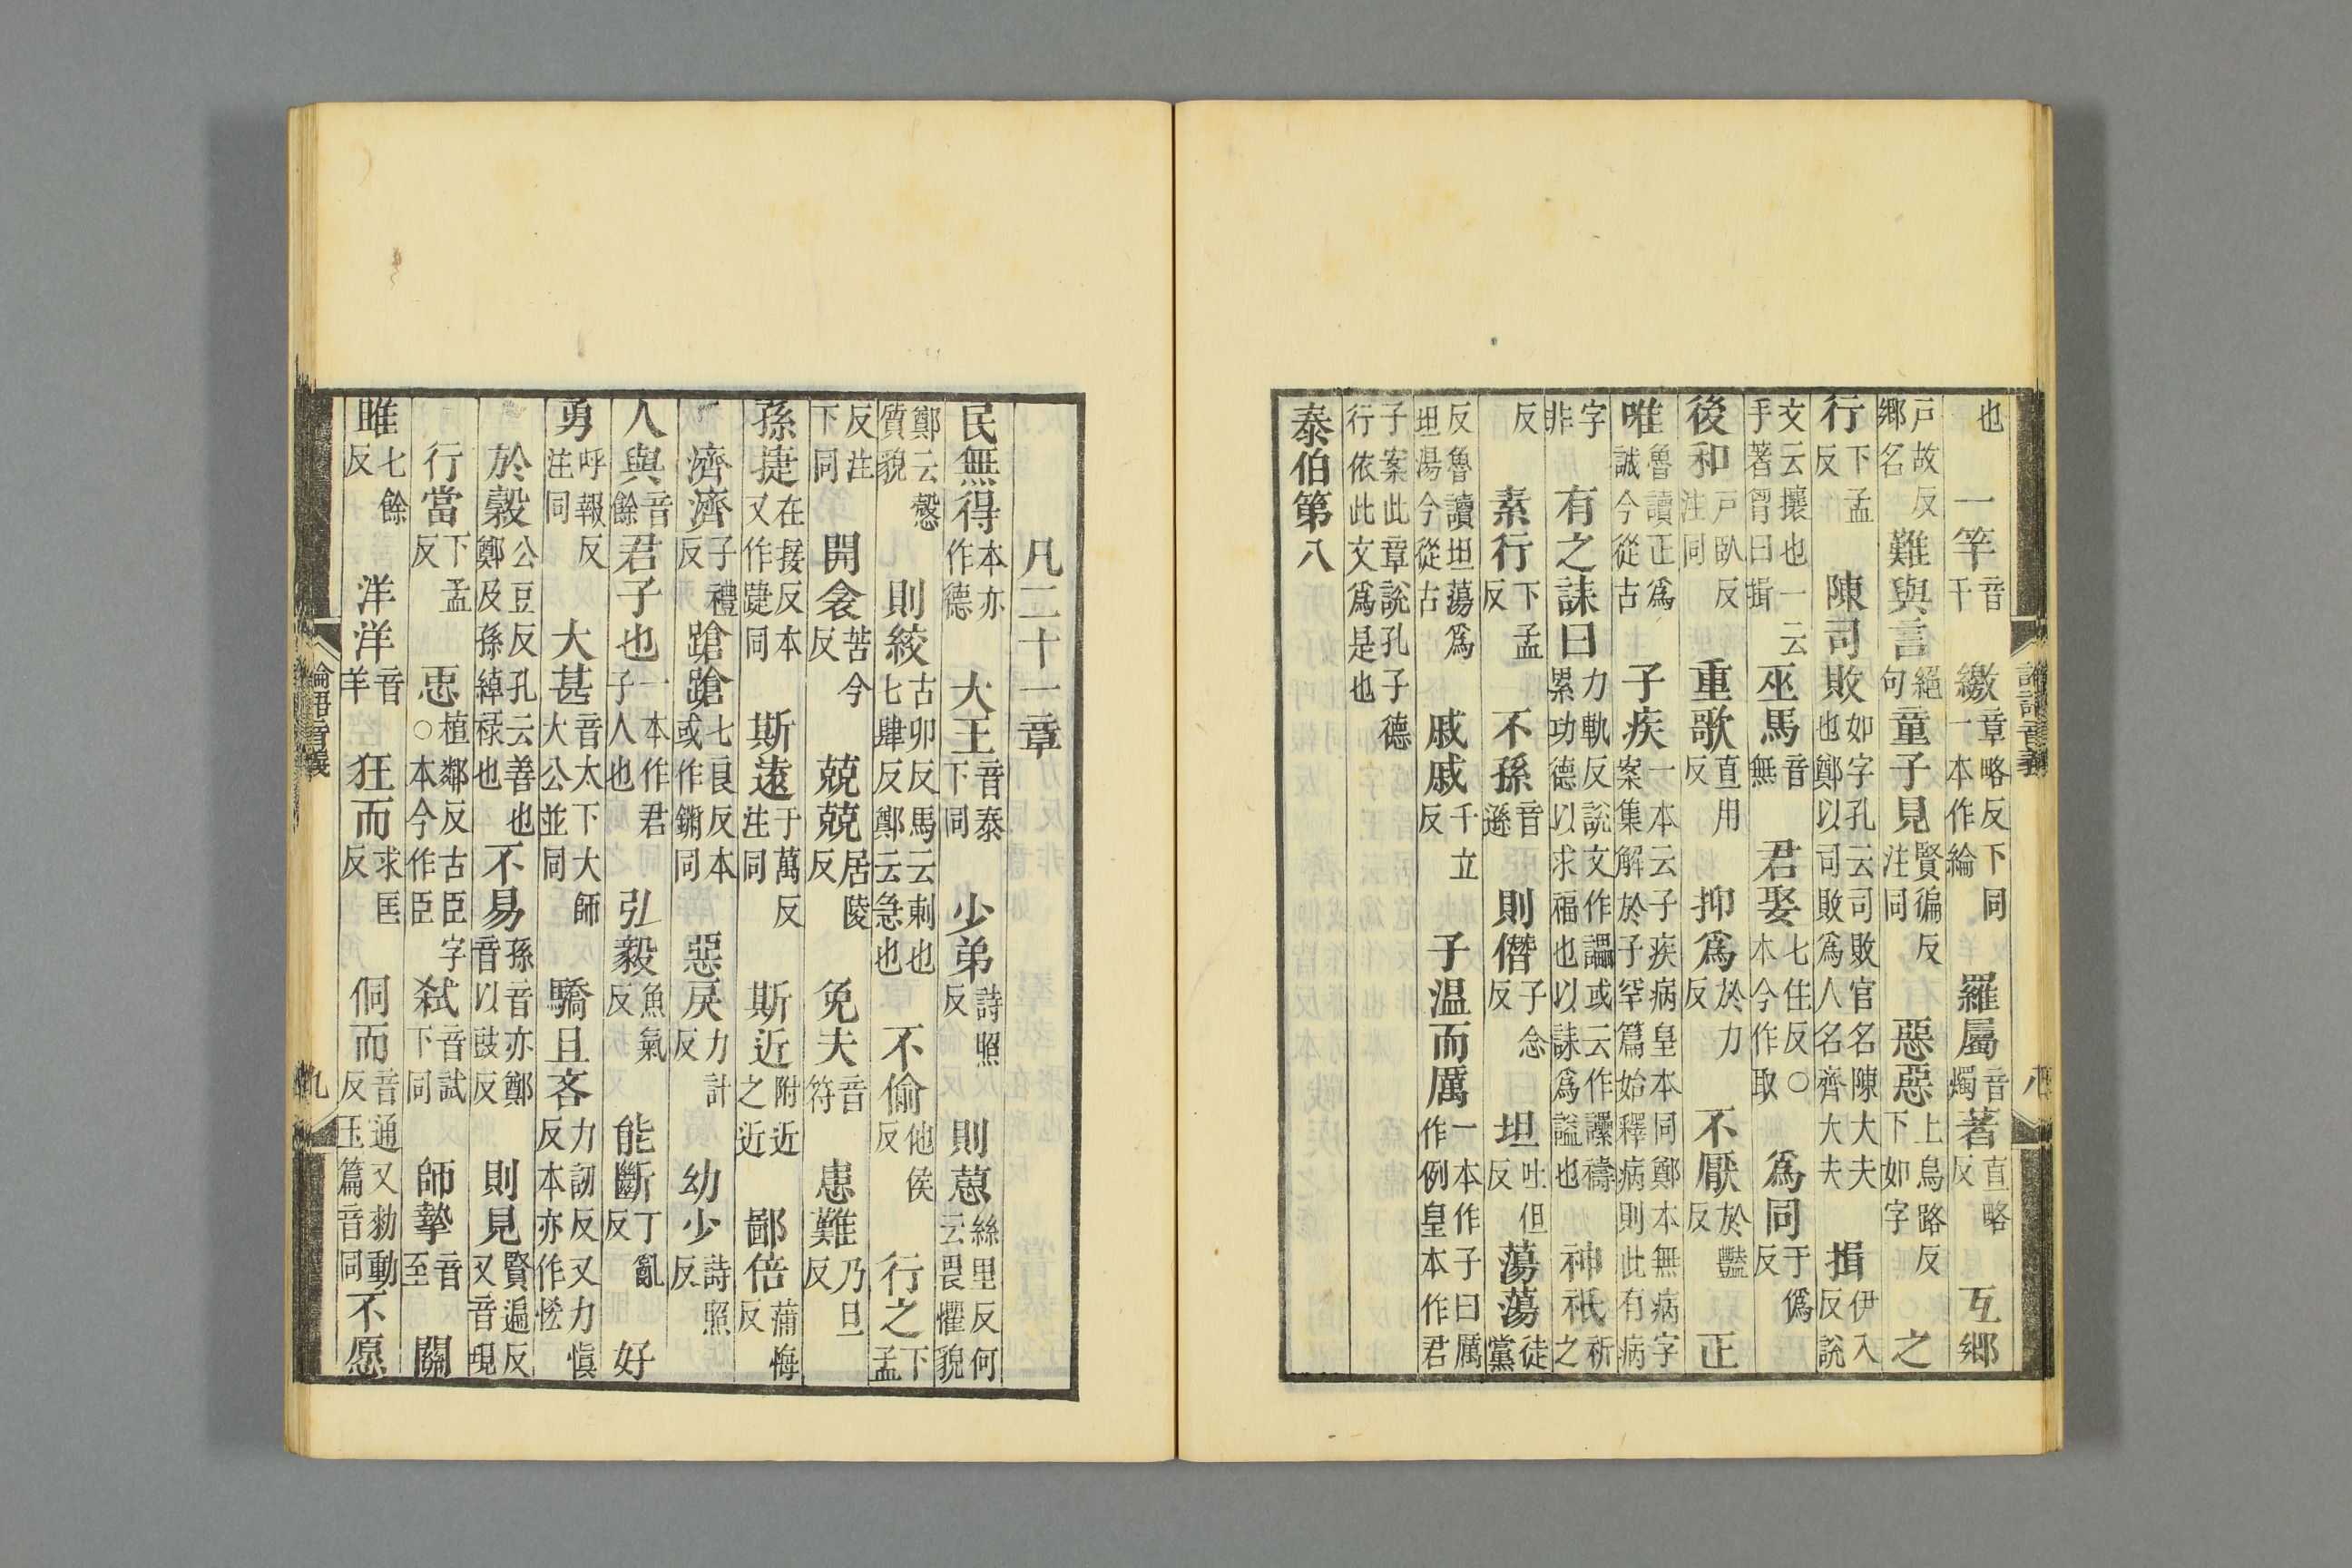 也 一竿音干 繳章略反下同一本作綸 羅屬音燭 著直略反 互鄉
戶故反鄉名 難與言絕句 童子見賢徧反注同 惡惡上烏路反下如字 之
行下孟反 陳司敗如字孔云司敗官名陳大夫也鄭以司敗爲人名齊大夫 揖伊入反說
文云攘也一云手著胷曰揖 巫馬音無 君娶七住反○本今作取 爲同于僞反
後和戶臥反注同 重歌直用反 抑爲於力反 不厭於豔反 正
唯魯讀正爲誠今從古 子疾一本云子疾病皇本同鄭本無病字案集解於子罕篇始釋病則此有病
字非 有之誄曰力軌反說文作讄或云作讄禱累功德以求福也以誄爲謚也 神祇祈之
反 素行下孟反 不孫音遜 則僭子念反 坦吐但反 蕩蕩徒黨
反魯讀坦蕩爲坦湯今從古 戚戚千立反 子温而厲一本作子曰厲作例皇本作君
子案此章說孔子德行依此文爲是也
泰伯第八
論語音義
八
凡二十一章
民無得本亦作德 大王音泰下同 少弟詩照反 則葸絲里反何云畏懼貌
鄭云愨質貌 則絞古卯反馬云刺也七肆反鄭云急也 不偷他侯反 行之下孟
反注下同 開衾苦今反 兢兢居陵反 免夫音符 患難乃旦反
孫捷在接反本又作踺同 斯遠于萬反注同 斯近附近之近 鄙倍蒲悔反
濟濟子禮反 蹌蹌七良反本或作鏘同 惡戾力計反 幼少詩照反
人與音餘 君子也一本作君子人也 弘毅魚氣反 能斷丁亂反 好
勇呼報反注同 大甚音太下大師大公並同 驕且吝力訒反又力慎反本亦作恡
於穀公豆反孔云善也鄭及孫綽祿也 不易孫音亦鄭音以豉反 則見賢遍反又音現
行當下孟反 𢘑植鄰反古臣字○本今作臣 弒音試下同 師摯音至 關
雎七餘反 洋洋音羊 狂而求匡反 侗而音通又勑動反玉篇音同 不愿
論語音義
九